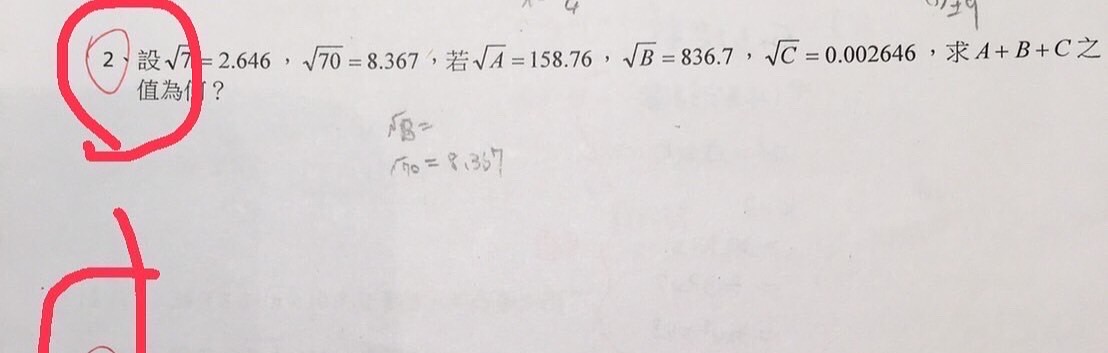 2、設√7=2.646，√70=8.367，若√A=158.76，√B=836.7，√C=0.002646，求A+B+C之
值為何？
√B=
√70=8.367